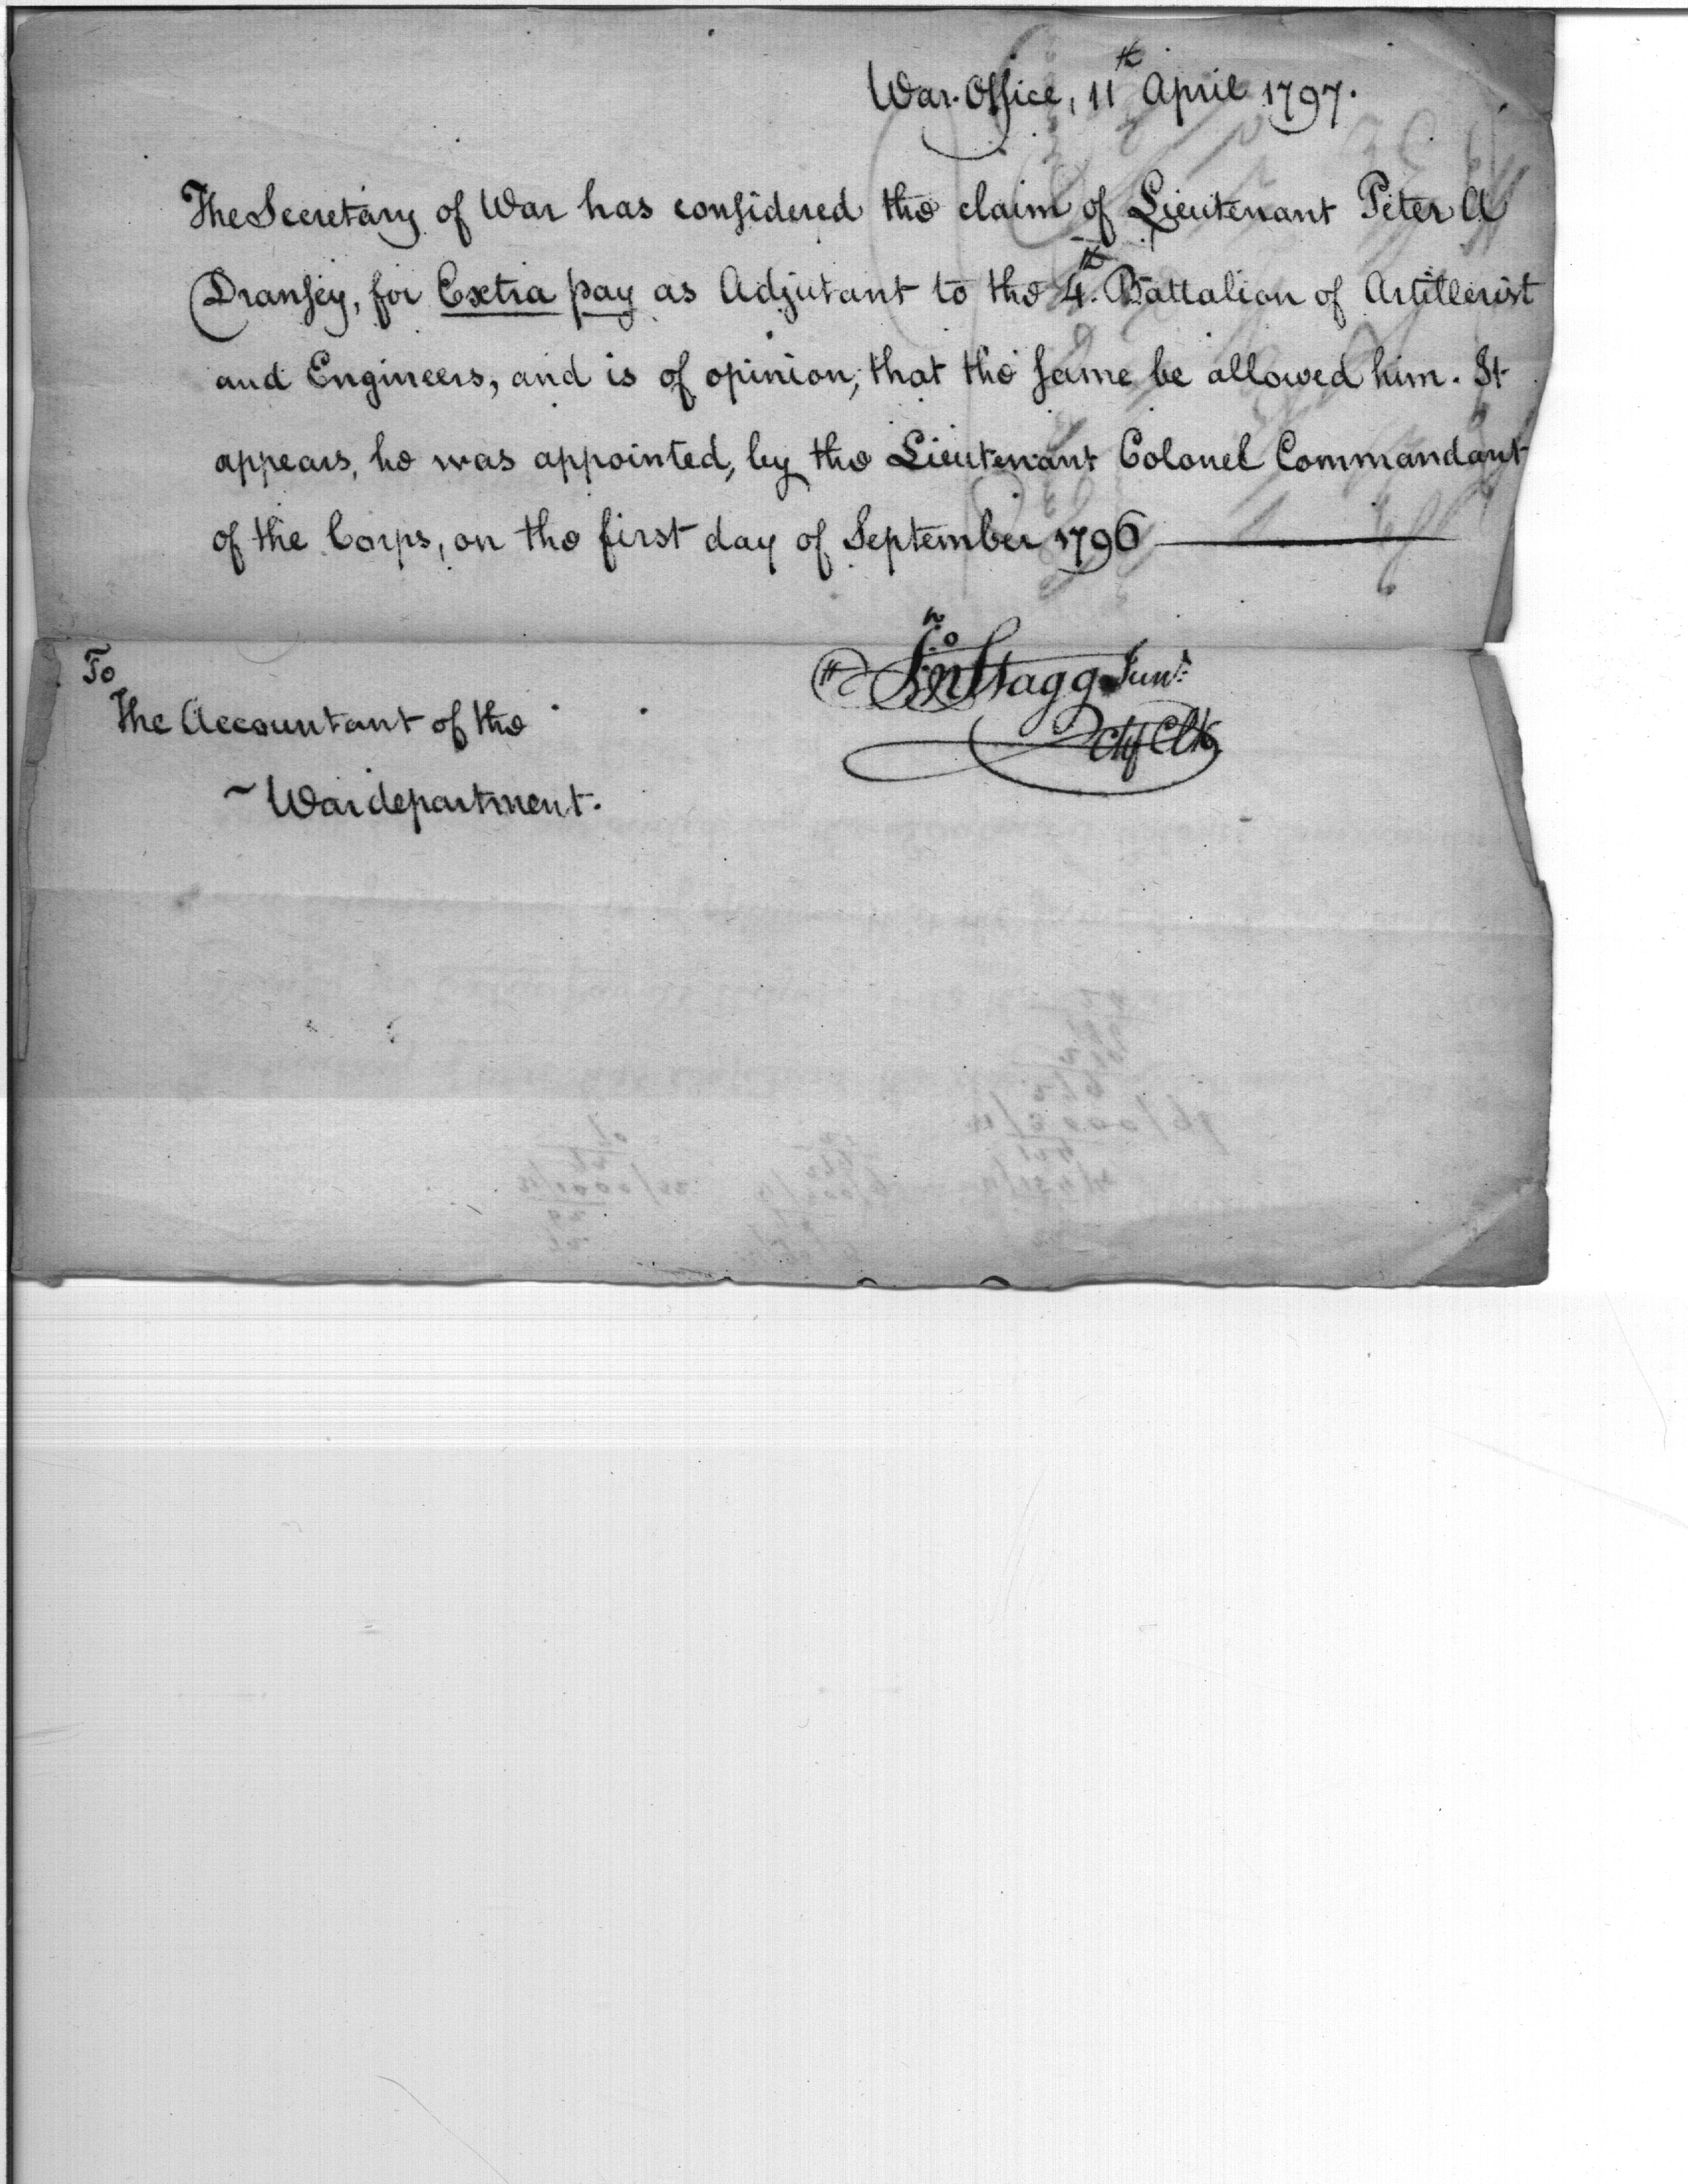 War Office, 11th April 1797.
The Secretary of War has considered the claim of Lieutenant Peter A
Dransey, for Extra pay as Adjutant to the 4th Battalion of Artillerist
and Engineers, and is of opinion, that the same be allowed him. It
appears, he was appointed, by the Lieutenant Colonel Commandant
of the Corps, on the first day of September 1796
Jno Stagg Junr
Chf Clk
To
The Accountant of the
War department.